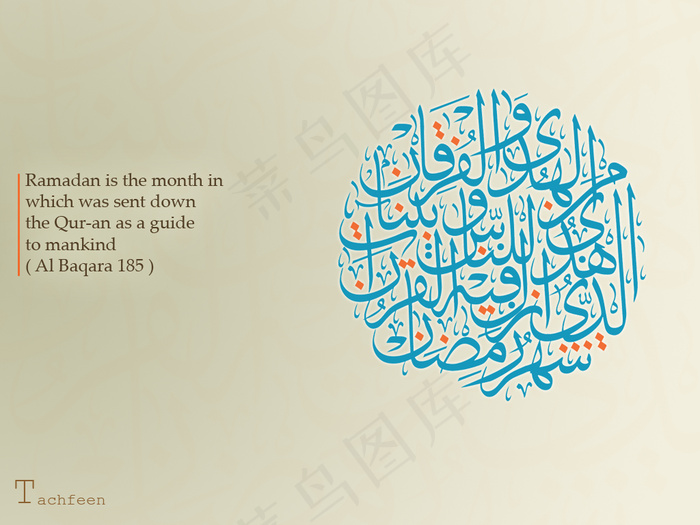 Ramadan is the month in
which was sent down
the Qur-an as a guide
to mankind
( Al Baqara 185 )
شهر رمضان
الذي أنزل فيه القرآن
هدى للناس وبينات
من الهدى والفرقان
菜鸟图库
菜鸟图库
Tachfeen